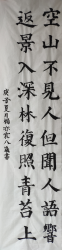 空山不見人但聞人語響
返景入深林復照青苔上
夏月 八歲書